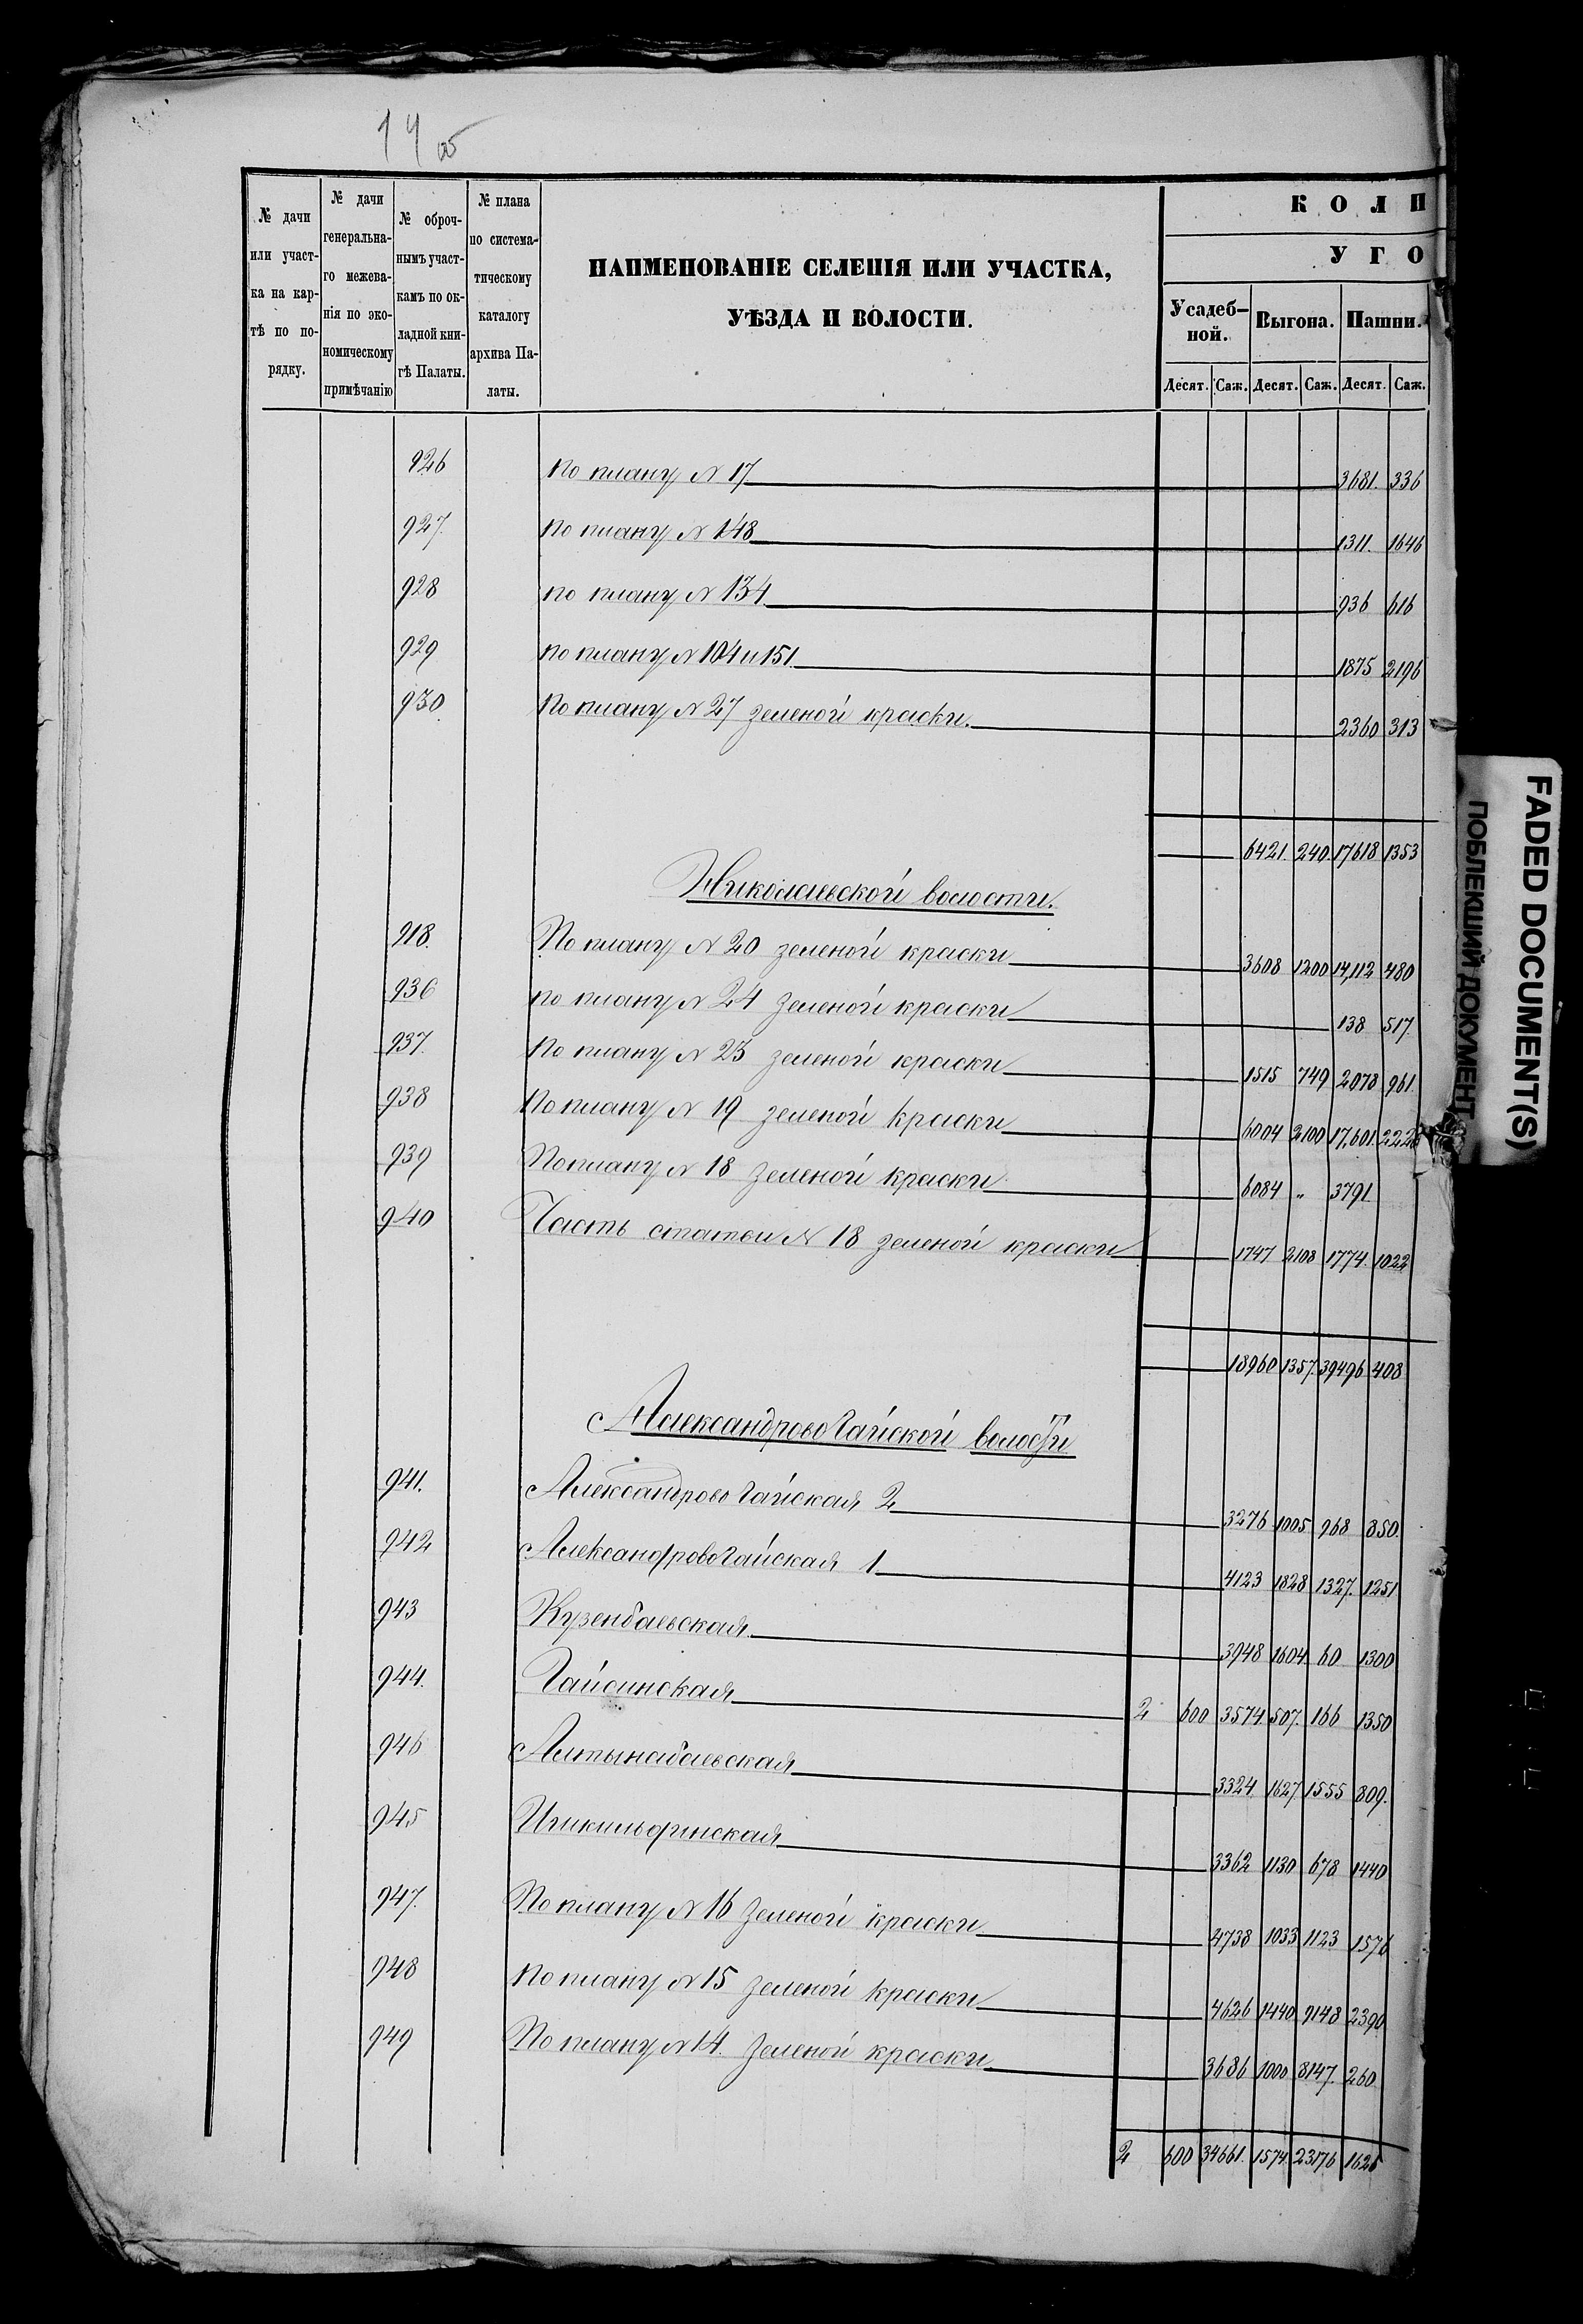 14 об
№ дачи или участка на картѣ по порядку.
№ дачи генеральнаго межеванія по экономическому примѣчанію
№ оброчнымъ участкамъ по окладной книгѣ Палаты.
№ плана по систематическому каталогу архива Палаты.
НАИМЕНОВАНІЕ СЕЛЕНІЯ ИЛИ УЧАСТКА,
УѢЗДА И ВОЛОСТИ.
КОЛИ
УГО
Усадебной. Выгона. Пашни.
Десят. Саж. Десят. Саж. Десят. Саж.
926 по плану N 17 3681. 336
927. по плану N 148 1311. 1646
928 по плану N 134 936 616
929 по плану N 104 и 151. 1875 2196
930. по плану N 27 зеленой краски. 2360 313
6421. 240. 17618 1353
Николаевской волости.
918. По плану N 20 зеленой краски 3608 1200 14,112 480
936 по плану N 24 зеленой краски 138 517.
937. по плану N 23 зеленой краски 1515 749 2078 961
938 по плану N 19 зеленой краски 6004 2100 17,601. 2228
939 По плану N 18 зеленой краски 6084 „ 3791.
940 Часть статьи N 18 зеленой краски 1747 2108 1774. 1022
18960 1357. 39496 408
Александровогайской волости
941. Александровогайская 2 3276 1005 968 850.
942 Александровогайская 1 4123 1828 1327. 1251
943 Кузенбаевская 3948 1604. 60 1300
944. Гайсинская 2 600 3574. 507. 166 1350
946 Алтынабаевская 3324. 1627 1555 809.
945 Игликильдинская 3362 1130 678 1440
947. По плану N 16 зеленой краски 4738 1033 1123 1576
948 по плану N 15 зеленой краски 4626 1440 9148 2390
949 По плану N 14. зеленой краски 3686 1000 8147. 260
2 600 34661. 1574. 23176 1626
FADED DOCUMENT(S)
ПОБЛЕКШИЙ ДОКУМЕНТ